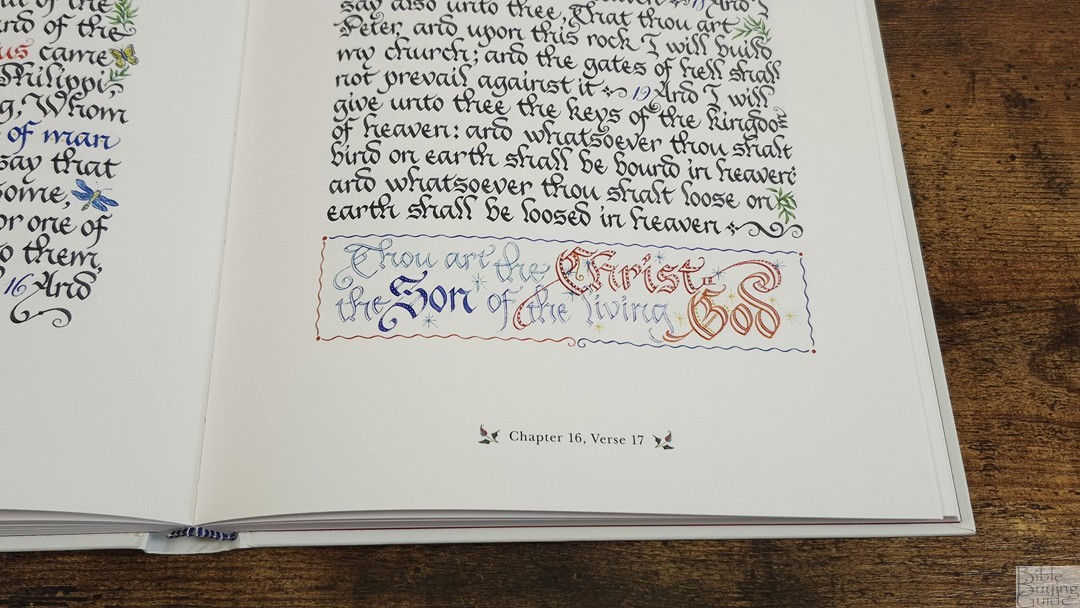 out of the
and of the
us came
Philippi,
g, Whom
of man
say that
some,
or one of
o them,
16 And
18 And I
say also unto thee, That thou art
Peter, and upon this rock I will build
my church; and the gates of hell shall
not prevail against it 19 And I will
give unto thee the keys of the kingdom
of heaven: and whatsoever thou shalt
bind on earth shall be bound in heaven:
and whatsoever thou shalt loose on
earth shall be loosed in heaven
Thou art the Christ,
the Son of the living God
Chapter 16, Verse 17
Bible
Buying
Guide